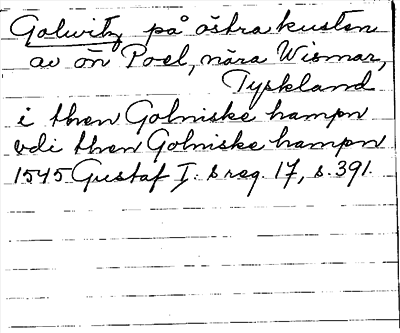 Golwitz på östra kusten
av ön Poel, nära Wismar,
Tyskland
i then Golniske hampn
vdi then Golniske hampn
1545 Gustaf I: s reg. 17, s. 391.